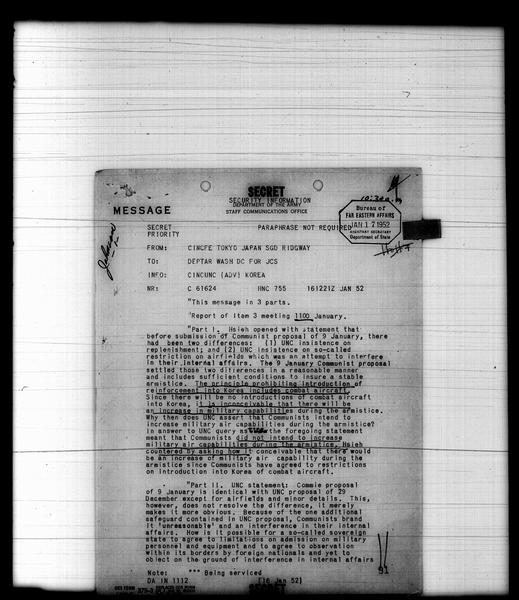 SECRET
SECURITY INFORMATION
DEPARTMENT OF THE ARMY
STAFF COMMUNICATIONS OFFICE
MESSAGE
Bureau of
FAR EASTERN AFFAIRS
JAN 17 1952
ASSISTANT SECRETARY
Department of State
SECRET
PRIORITY
PARAPHRASE NOT REQUIRED
FROM: CINCFE TOKYO JAPAN SGD RIDGWAY
TO: DEPTAR WASH DC FOR JCS
INFO: CINCUNC (ADV) KOREA
NR: C 61624 HNC 755 161221Z JAN 52
"This message in 3 parts.
"Report of Item 3 meeting 1100 January.
"Part I. Hsieh opened with statement that
before submission of Communist proposal of 9 January, there
had been two differences: (1) UNC insistence on
replenishment; and (2) UNC insistence on so-called
restriction on airfields which was an attempt to interfere
in their internal affairs. The 9 January Communist proposal
settled those two differences in a reasonable manner
and includes sufficient conditions to insure a stable
armistice. The principle prohibiting introduction of
reinforcement into Korea includes combat aircraft.
Since there will be no introductions of combat aircraft
into Korea, it is inconceivable that there will be
an increase in military capabilities during the armistice.
Why then does UNC assert that Communists intend to
increase military air capabilities during the armistice?
In answer to UNC query as the foregoing statement
meant that Communists did not intend to increase
military air capabilities during the armistice, Hsieh
countered by asking how it conceivable that there would
be an increase of military air capability during the
armistice since Communists have agreed to restrictions
on introduction into Korea of combat aircraft.
"Part II. UNC statement: Commie proposal
of 9 January is identical with UNC proposal of 29
December except for airfields and minor details. This,
however, does not resolve the difference, it merely
makes it more obvious. Because of the one additional
safeguard contained in UNC proposal, Communists brand
it 'unreasonable' and an interference in their internal
affairs. How is it possible for a so-called sovereign
state to agree to limitations on admission on military
personnel and equipment and to agree to observation
within its borders by foreign nationals and yet to
object on the ground of interference in internal affairs
Note: *** Being serviced
DA IN 1112 (16 Jan 52)
SECRET